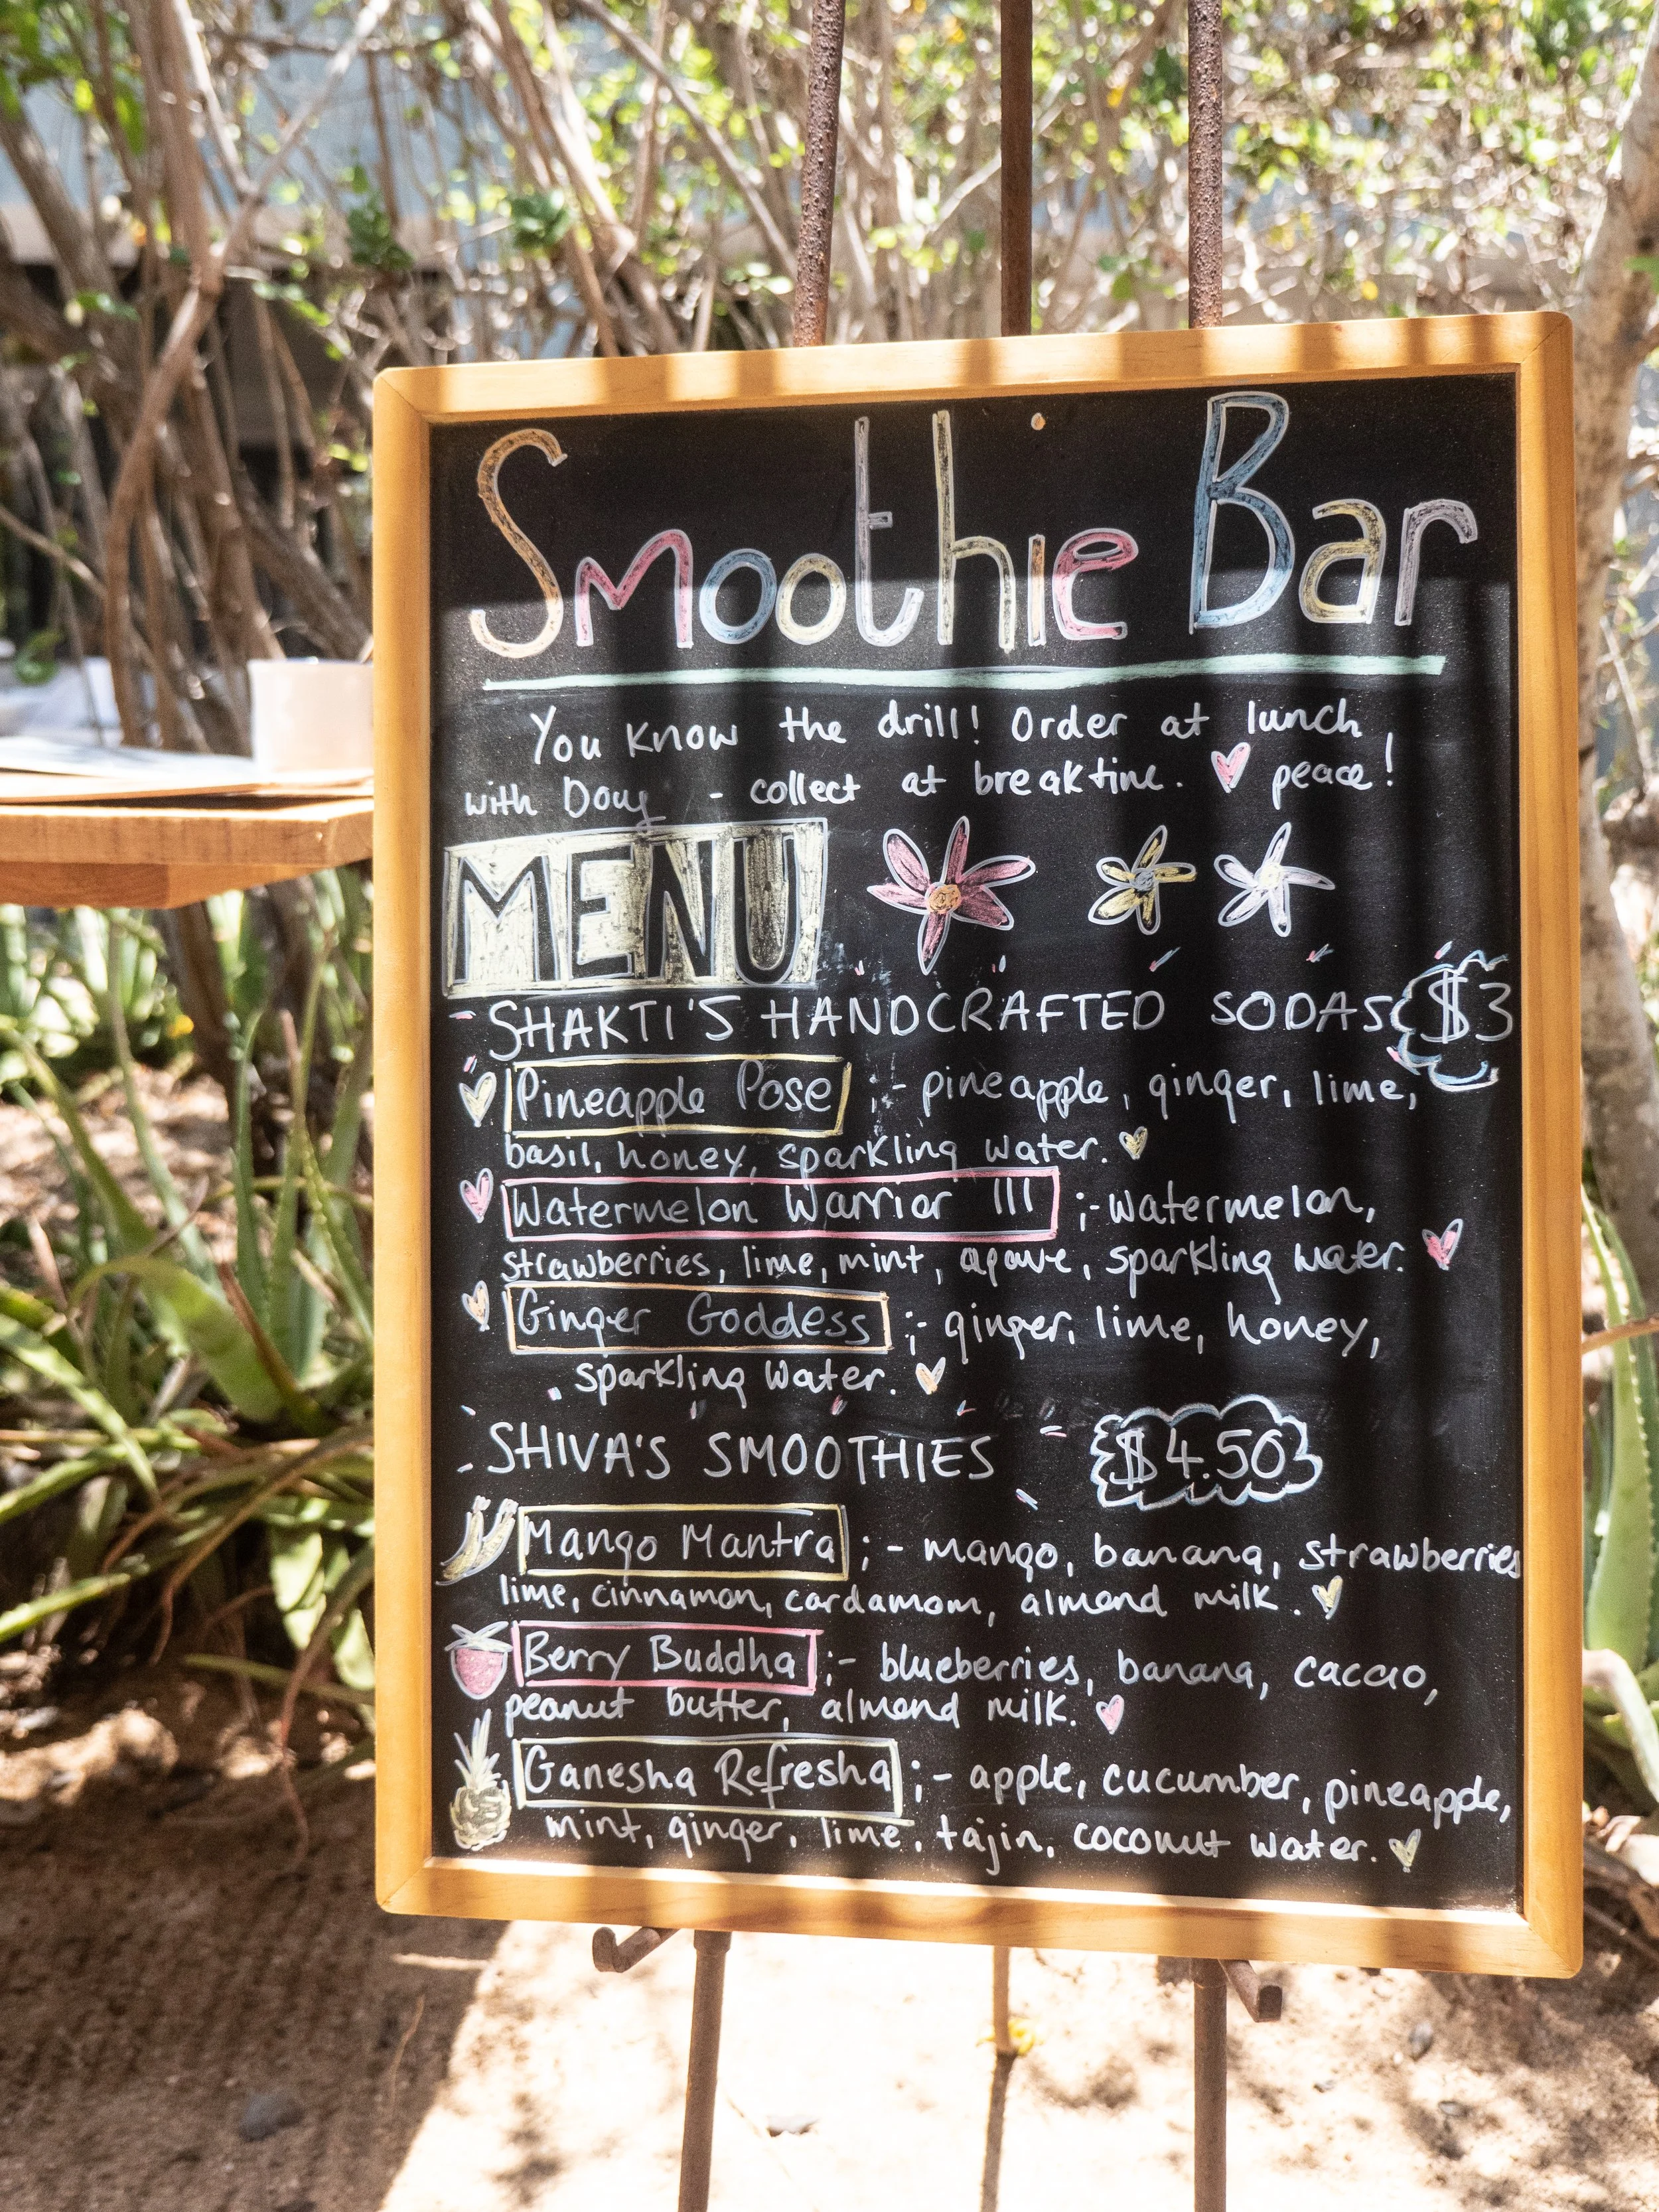 Smoothie Bar
You know the drill! Order at lunch
with Doug - collect at breaktime. peace!
MENU
SHAKTI'S HANDCRAFTED SODAS $3
Pineapple Pose ;- pineapple, ginger, lime,
basil, honey, sparkling water.
Watermelon Warrior III ;- watermelon,
strawberries, lime, mint, agave, sparkling water.
Ginger Goddess ;- ginger, lime, honey,
sparkling water.
SHIVA'S SMOOTHIES $4.50
Mango Mantra ;- mango, banana, strawberries
lime, cinnamon, cardamom, almond milk.
Berry Buddha ;- blueberries, banana, cacao,
peanut butter, almond milk.
Ganesha Refresha ;- apple, cucumber, pineapple,
mint, ginger, lime, tajin, coconut water.